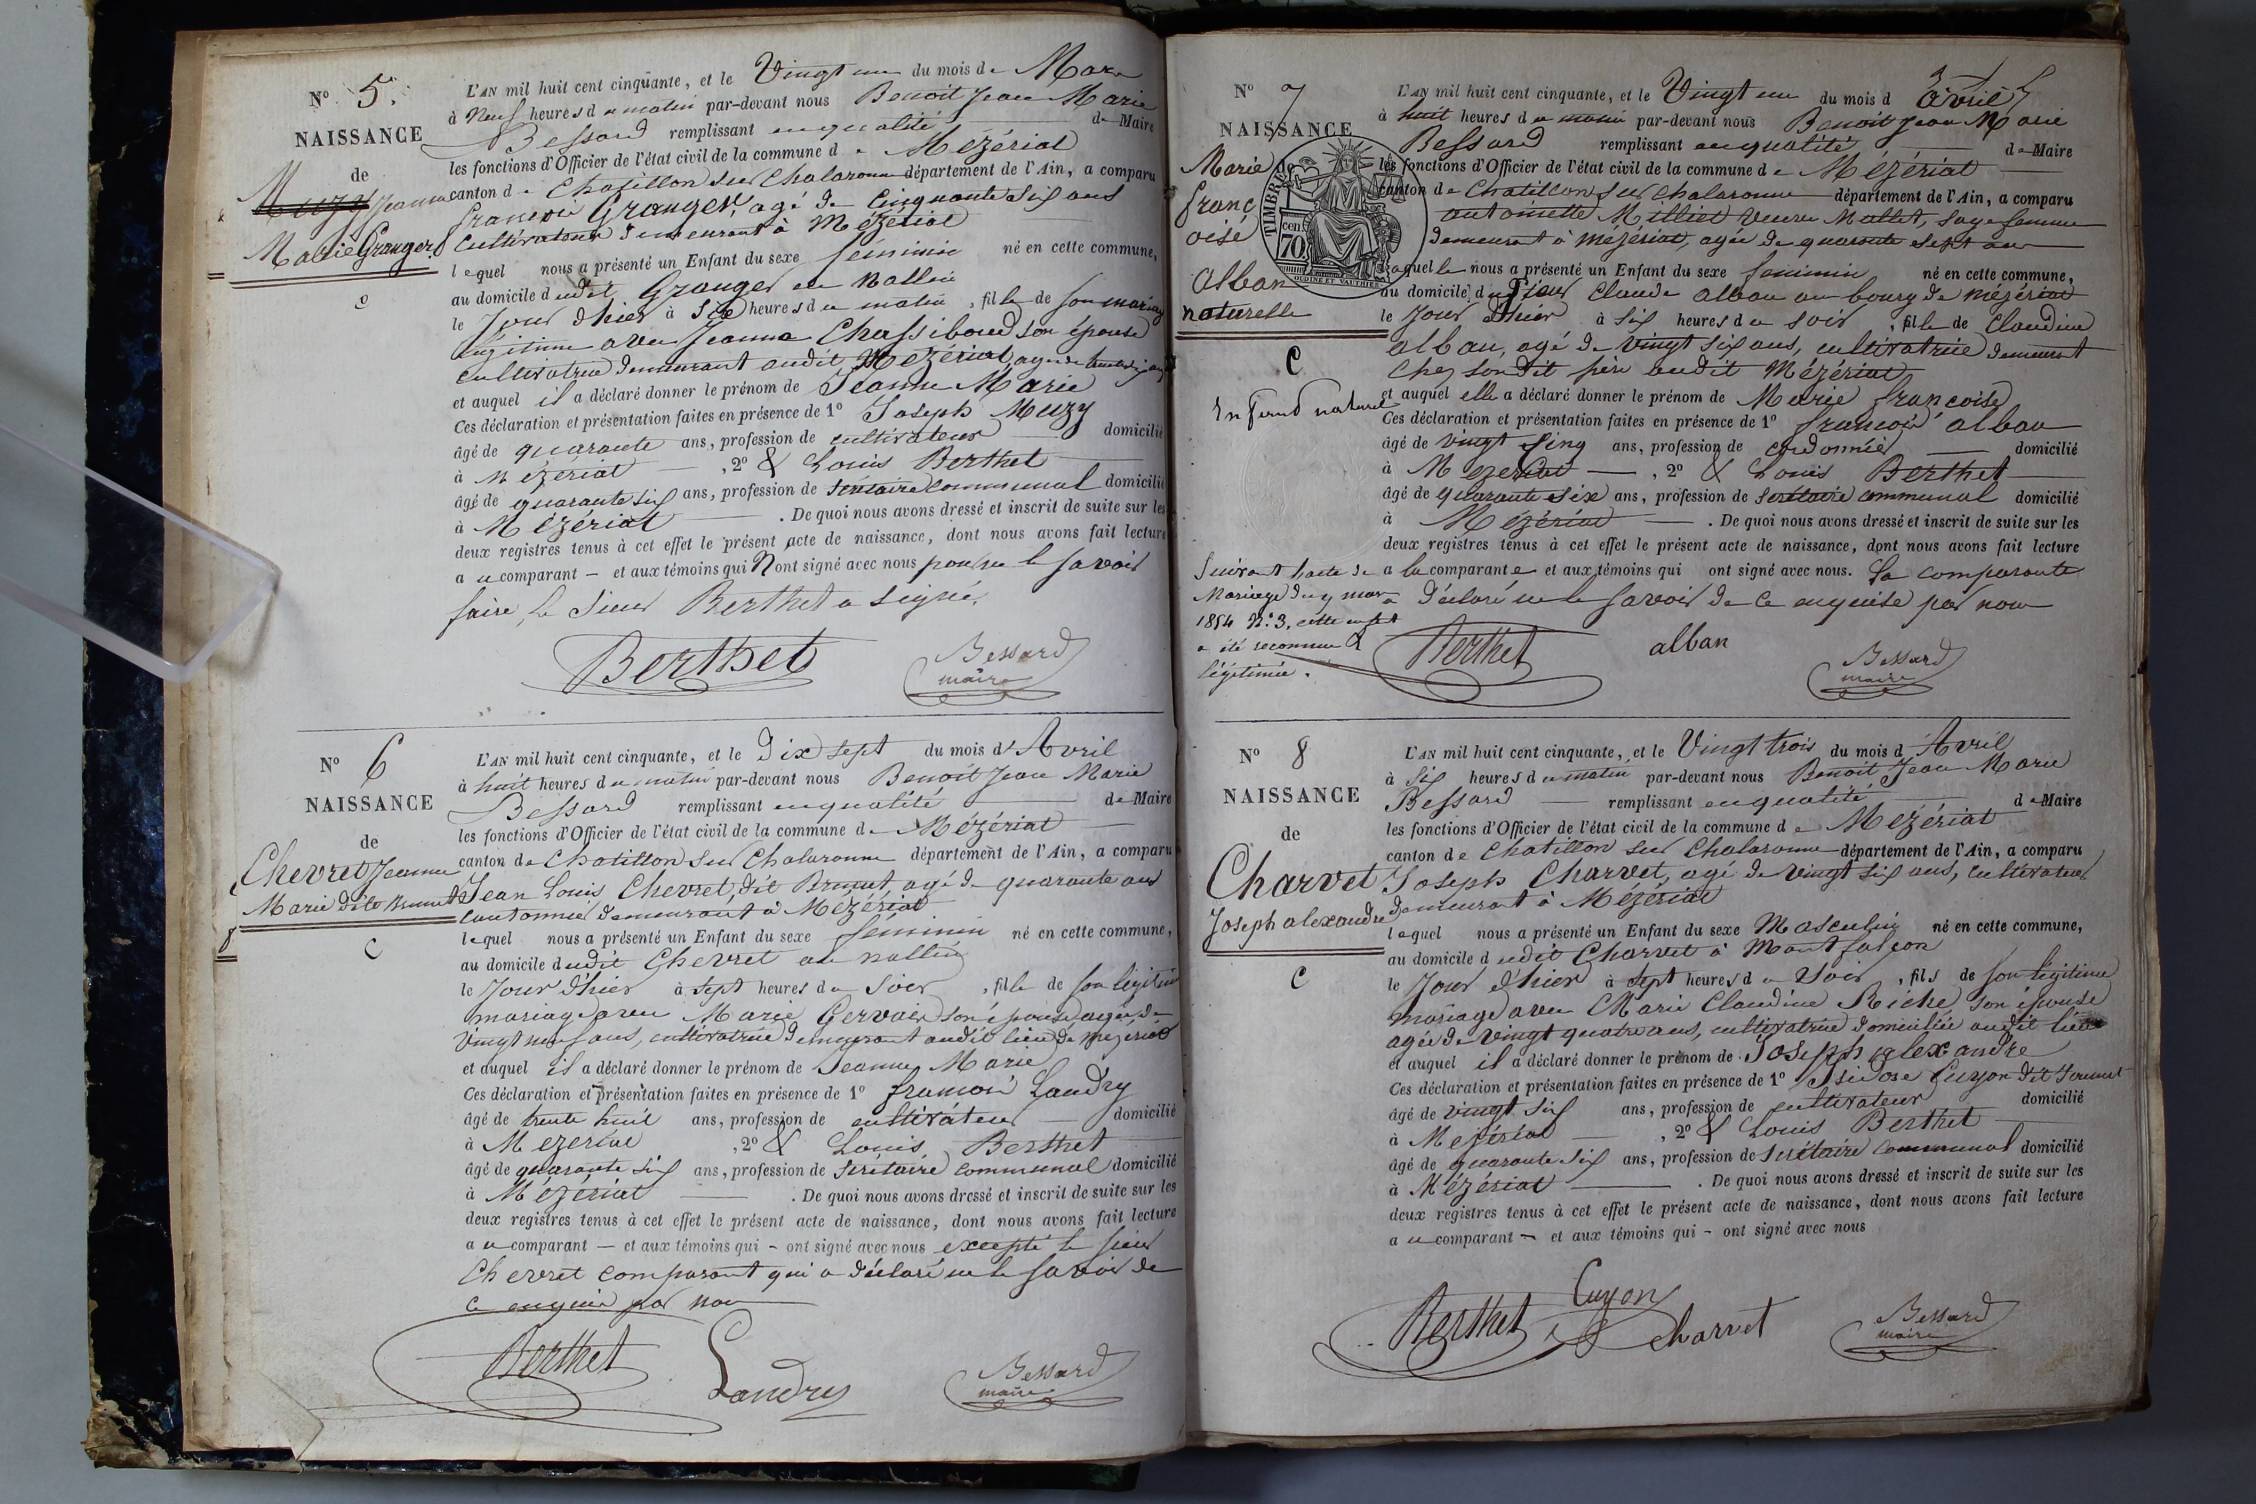 N° 5.
NAISSANCE
de
Muzy Jeanne
Marie Granger
L'AN mil huit cent cinquante, et le Vingt un du mois de Mars
à Neuf heures du matin par-devant nous Benoit Jean Marie
Bessard remplissant en qualité de Maire
les fonctions d'Officier de l'état civil de la commune de Mézériat
canton de Chatillon sur Chalaronne département de l'Ain, a comparu
françois Granger, agé de Cinquante Six ans
Cultivateur demeurant à Mézériat
lequel nous a présenté un Enfant du sexe féminin né en cette commune,
au domicile dudit Granger en
le Jour d'hier à Six heures du matin, fille de son mariage
légitime avec Jeanne Chassiboud son épouse
cultivatrice demeurant audit Mézériat, agée de
et auquel il a déclaré donner le prénom de Jeanne Marie
Ces déclaration et présentation faites en présence de 1° Joseph Muzy
âgé de quarante ans, profession de cultivateur domicilié
à Mézériat, 2° & Louis Berthet
âgé de quarante six ans, profession de Secrétaire communal domicilié
à Mézériat. De quoi nous avons dressé et inscrit de suite sur les
deux registres tenus à cet effet le présent acte de naissance, dont nous avons fait lecture
a u comparant — et aux témoins qui Nont signé avec nous pour ne le savoir
faire, le Sieur Berthet a signé.
Berthet
Bessard
maire
N° 6
NAISSANCE
de
Chevret Jeanne
Marie dite Brunet
C
L'AN mil huit cent cinquante, et le Dix sept du mois d'Avril
à huit heures du matin par-devant nous Benoit Jean Marie
Bessard remplissant en qualité de Maire
les fonctions d'Officier de l'état civil de la commune de Mézériat
canton de Chatillon sur Chalaronne département de l'Ain, a comparu
Jean Louis Chevret, dit Brunet, agé de quarante ans
Cantonnier demeurant à Mézériat
lequel nous a présenté un Enfant du sexe féminin né en cette commune,
au domicile dudit Chevret au
le Jour d'hier à Sept heures du Soir, fille de son légitime
mariage avec Marie Gervais son épouse agée de
vingt neuf ans, cultivatrice demeurant audit lieu de Mézériat
et auquel il a déclaré donner le prénom de Jeanne Marie
Ces déclaration et présentation faites en présence de 1° francois Landry
âgé de trente huit ans, profession de cultivateur domicilié
à Mezeriat, 2° & Louis Berthet
âgé de quarante six ans, profession de Secrétaire communal domicilié
à Mézériat. De quoi nous avons dressé et inscrit de suite sur les
deux registres tenus à cet effet le présent acte de naissance, dont nous avons fait lecture
a u comparant — et aux témoins qui - ont signé avec nous excepté le sieur
Chevret comparant qui a déclaré ne le savoir de
ce enquis par nous
Berthet
Landry
Bessard
maire
N° 7
NAISSANCE
de
Marie
franç
oise
Alban
naturelle
C
Enfant naturel
TIMBRE
70 cen
OUDINE ET VAUTHIER
L'AN mil huit cent cinquante, et le Vingt un du mois d avril
à huit heures du matin par-devant nous Benoit Jean Marie
Bessard remplissant en qualité de Maire
les fonctions d'Officier de l'état civil de la commune de Mézériat
canton de Chatillon sur Chalaronne département de l'Ain, a comparu
antoinette Milliet veuve Mallet, sage femme
demeurant à Mézériat, agée de quarante sept ans
laquelle nous a présenté un Enfant du sexe feminin né en cette commune,
au domicile du Sieur Claude alban au bourg de Mézériat
le Jour d'hier à Six heures du soir, fille de Claudine
alban, agé de vingt six ans, cultivatrice demeurant
chez sondit père audit Mézériat
et auquel elle a déclaré donner le prénom de Marie françoise
Ces déclaration et présentation faites en présence de 1° francois alban
âgé de vingt cinq ans, profession de cordonnier domicilié
à Mezeriat, 2° & Louis Berthet
âgé de quarante six ans, profession de Secrétaire communal domicilié
à Mézériat. De quoi nous avons dressé et inscrit de suite sur les
deux registres tenus à cet effet le présent acte de naissance, dont nous avons fait lecture
a la comparante et aux témoins qui ont signé avec nous. La comparante
a déclaré ne le savoir de ce enquise par nous
Suivant l'acte de
Mariage du 9 mars
1854 N° 3, cette enfant
a été reconnue &
légitimée.
Berthet
alban
Bessard
maire
N° 8
NAISSANCE
de
Charvet
Joseph alexandre
C
L'AN mil huit cent cinquante, et le Vingt trois du mois d'Avril
à Six heures du matin par-devant nous Benoit Jean Marie
Bessard remplissant en qualité de Maire
les fonctions d'Officier de l'état civil de la commune de Mézériat
canton de Chatillon sur Chalaronne département de l'Ain, a comparu
Joseph Charvet, agé de vingt six ans, cultivateur
demeurant à Mézériat
lequel nous a présenté un Enfant du sexe Masculin né en cette commune,
au domicile dudit Charvet à Montfalcon
le Jour d'hier à Sept heures du Soir, fils de son légitime
mariage avec Marie Claudine Riche son épouse
agée de vingt quatre ans, cultivatrice domiciliée audit lieu
et auquel il a déclaré donner le prénom de Joseph alexandre
Ces déclaration et présentation faites en présence de 1° Isidore Guyon dit
âgé de vingt six ans, profession de cultivateur domicilié
à Mézériat, 2° & Louis Berthet
âgé de quarante six ans, profession de Secrétaire communal domicilié
à Mézériat. De quoi nous avons dressé et inscrit de suite sur les
deux registres tenus à cet effet le présent acte de naissance, dont nous avons fait lecture
a u comparant — et aux témoins qui - ont signé avec nous
Berthet
Guyon
charvet
Bessard
maire